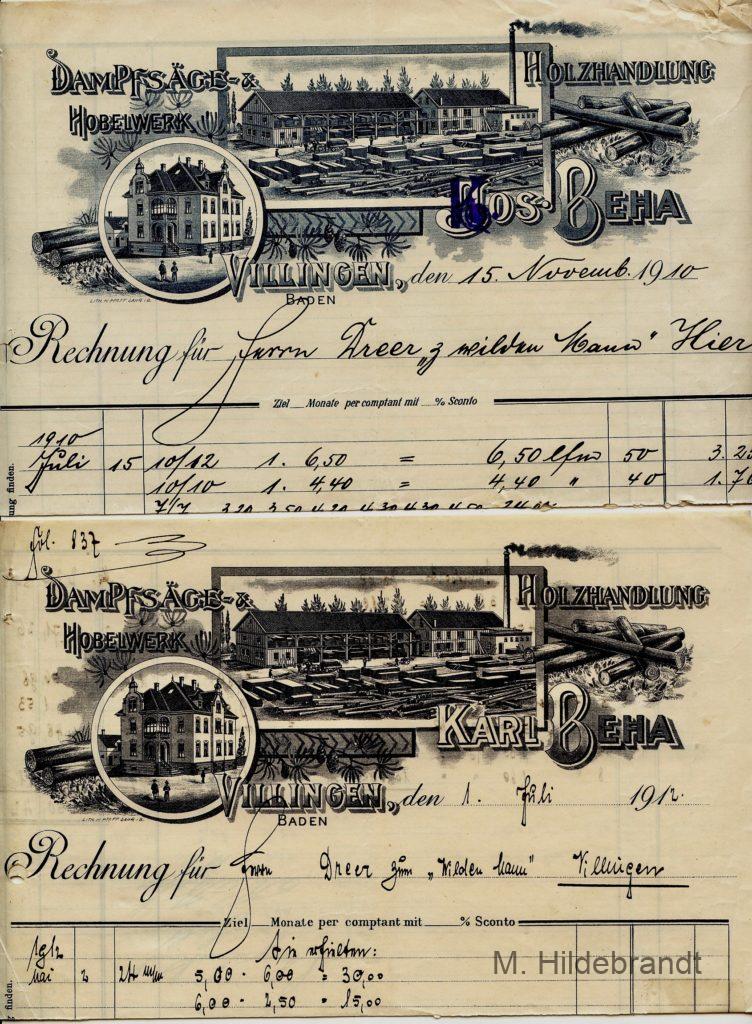 DAMPFSÄGE- & HOLZHANDLUNG
HOBELWERK
K. Jos. BEHA
VILLINGEN, den 15. Novemb. 1910
BADEN
LITH. H. PFAFF LAHR i. B.
Rechnung für Herrn Dreer „z wilden Mann" Hier
Ziel Monate per comptant mit % Sconto
1910
Juli 15 10/12 1. 6,50 = 6,50 lfm 50 3.25
10/10 1. 4,40 = 4,40 " 40 1.76
7/7 3.20 3.50 4.20 4.30 4.30 4.50
ung finden.
fol. 837
DAMPFSÄGE- & HOLZHANDLUNG
HOBELWERK
KARL BEHA
VILLINGEN, den 1. Juli 1912.
BADEN
LITH. H. PFAFF LAHR i. B.
Rechnung für Herrn Dreer zum „Wilden Mann" Villingen
Ziel Monate per comptant mit % Sconto
1912 An erhielten:
Mai 2 24 m/m 5,00 · 6,00 = 30,00
6,00 · 2,50 = 15,00
finden.
M. Hildebrandt